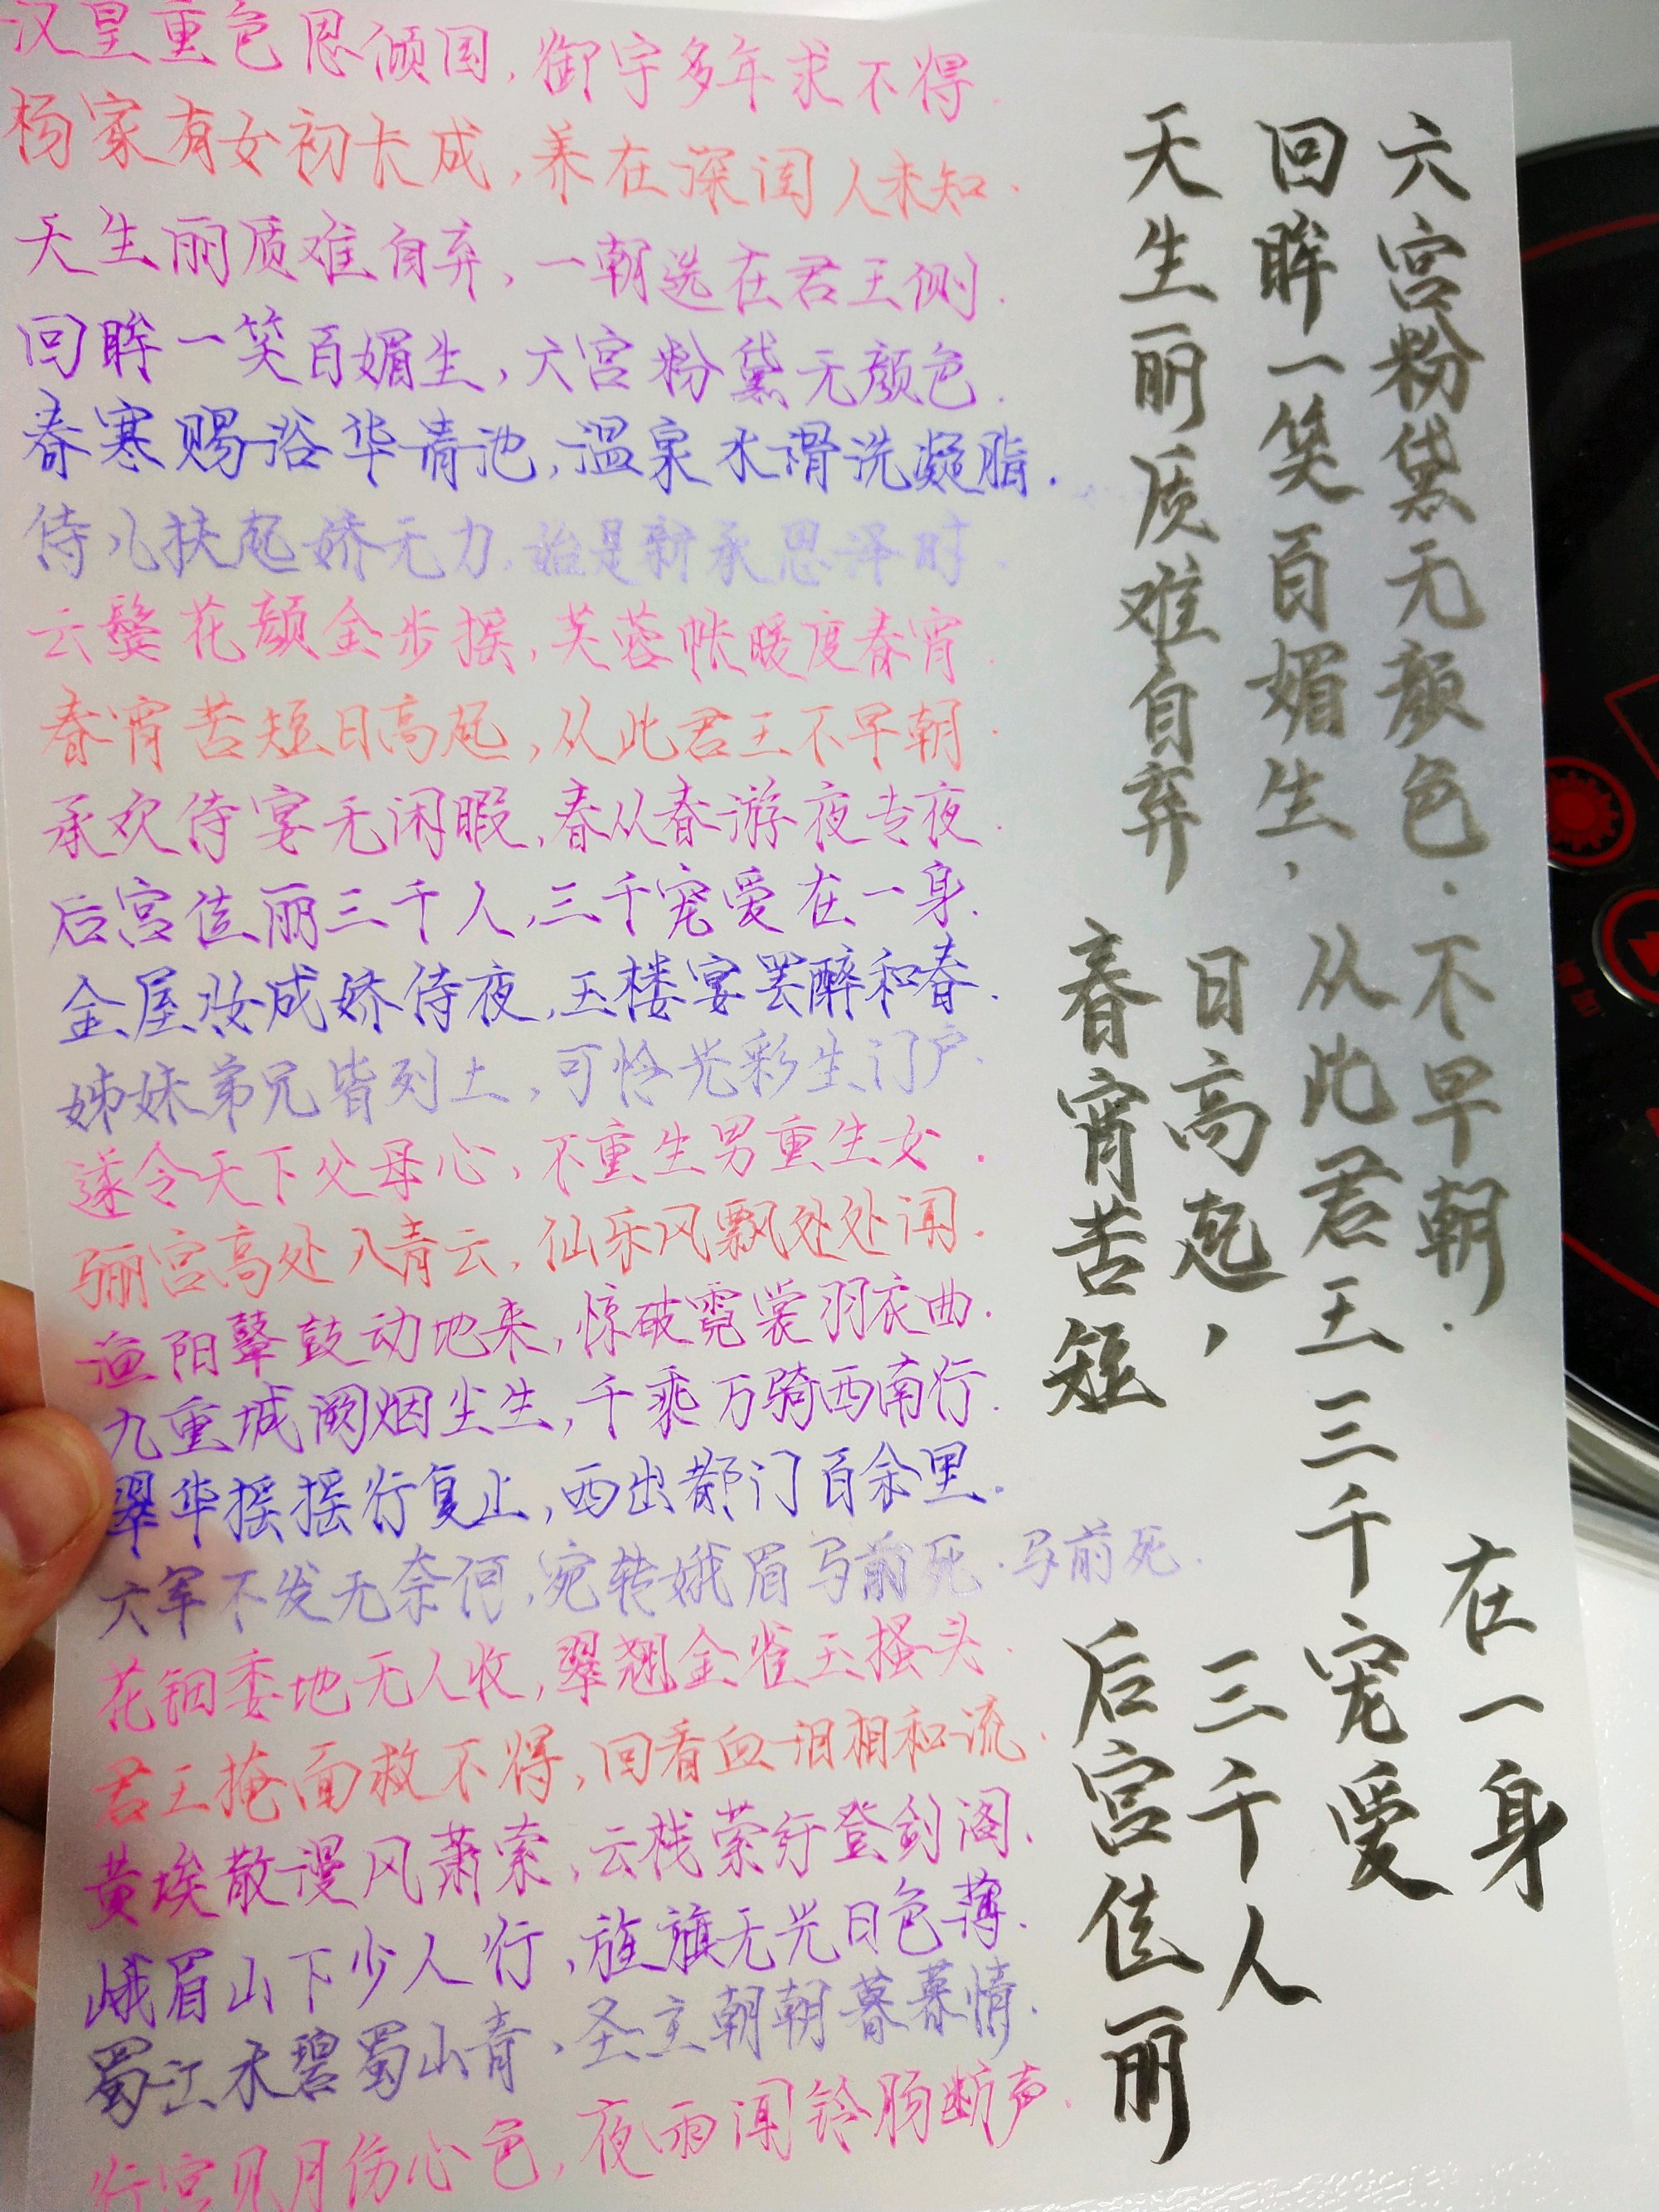 汉皇重色思倾国，御宇多年求不得．
杨家有女初长成，养在深闺人未知．
天生丽质难自弃，一朝选在君王侧．
回眸一笑百媚生，六宫粉黛无颜色．
春寒赐浴华清池，温泉水滑洗凝脂．
侍儿扶起娇无力．始是新承恩泽时．
云鬓花颜金步摇，芙蓉帐暖度春宵．
春宵苦短日高起，从此君王不早朝．
承欢侍宴无闲暇，春从春游夜专夜．
后宫佳丽三千人，三千宠爱在一身．
金屋妆成娇侍夜，玉楼宴罢醉和春．
姊妹弟兄皆列土，可怜光彩生门户．
遂令天下父母心，不重生男重生女．
骊宫高处入青云，仙乐风飘处处闻．
渔阳鼙鼓动地来，惊破霓裳羽衣曲．
九重城阙烟尘生，千乘万骑西南行．
翠华摇摇行复止，西出都门百余里．
六军不发无奈何，宛转娥眉马前死．马前死．
花钿委地无人收，翠翘金雀玉搔头．
君王掩面救不得，回看血泪相和流．
黄埃散漫风萧索，云栈萦纡登剑阁．
峨眉山下少人行，旌旗无光日色薄．
蜀江水碧蜀山青，圣主朝朝暮暮情．
行宫见月伤心色，夜雨闻铃肠断声．
天生丽质难自弃
回眸一笑百媚生，
六宫粉黛无颜色．
春宵苦短
日高起，
从此君王
不早朝．
后宫佳丽
三千人
三千宠爱
在一身